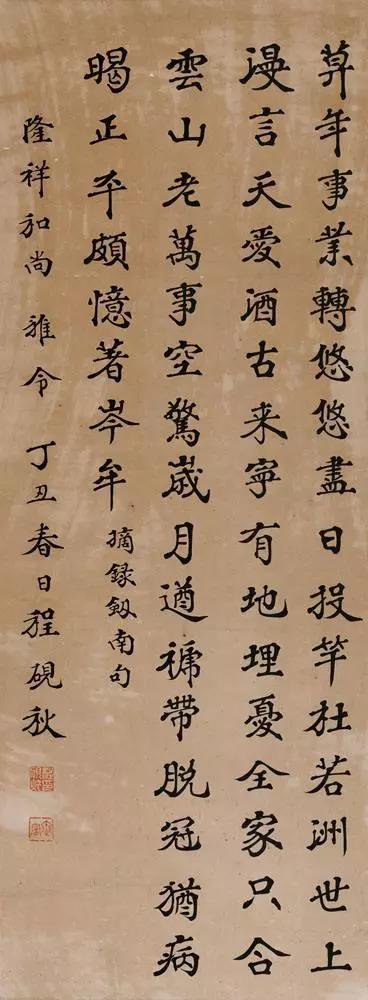 莫年事業轉悠悠盡日投竿杜若洲世上
漫言天愛酒古来寧有地埋憂全家只合
雲山老萬事空驚歲月遒褫帶脫冠猶病
暍正平頗憶著岑牟
摘録劔南句
隆祥和尚 雅令 丁丑春日程硯秋